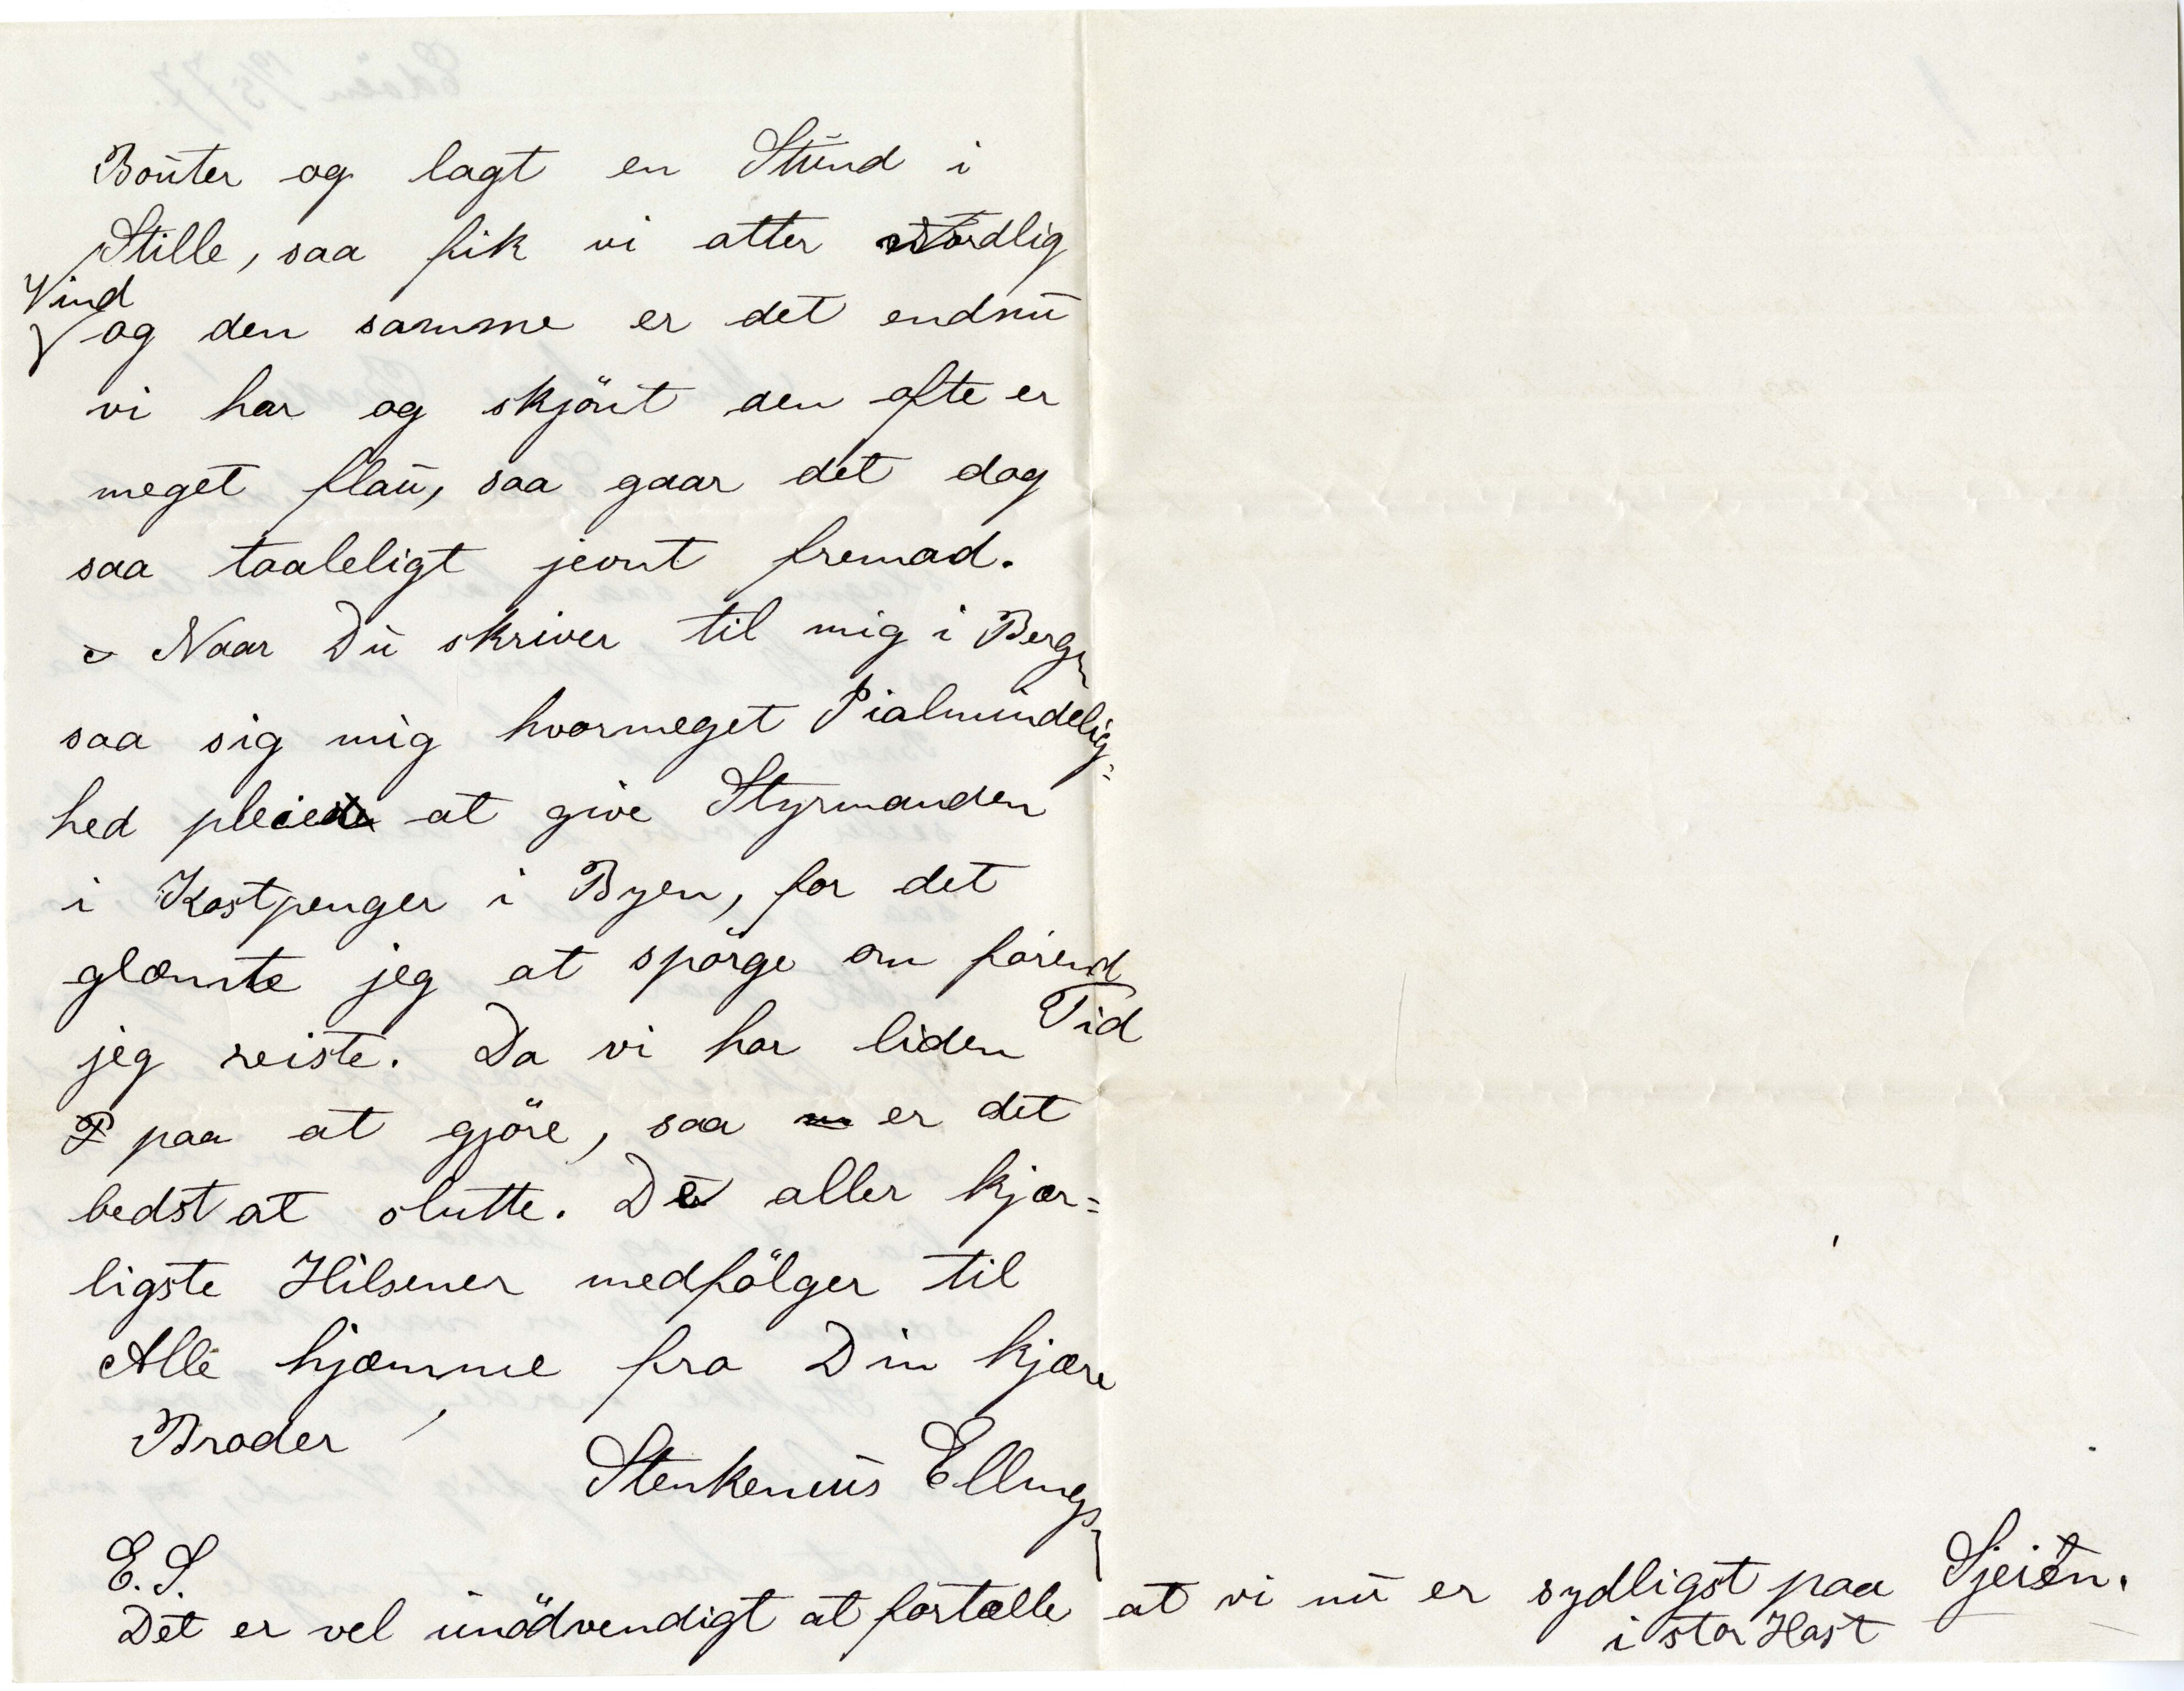 Bouter og lagt en Stund i
Stille, saa fik vi atter nordlig
Vind
og den samme er det endnu
vi har og skjönt den ofte er
meget flau, saa gaar det dog
saa taaleligt jevnt fremad.
Naar Du skriver til mig i Bergn
saa sig mig hvormeget Pialmindelig=
hed pleie at give Styrmanden
i Kostpenger i Byen, for det
glemte jeg at spörge om förend
jeg reiste. Da vi har liden Tid
paa at gjöre, saa er det
bedst at slutte. De aller kjær=
ligste Hilsener medfölger til
Alle hjemme fra Din kjære
Broder
Stenkenius Ellings
E.S.
Det er vel unödvendigt at fortælle at vi nu er sydligst paa
i stor Hast